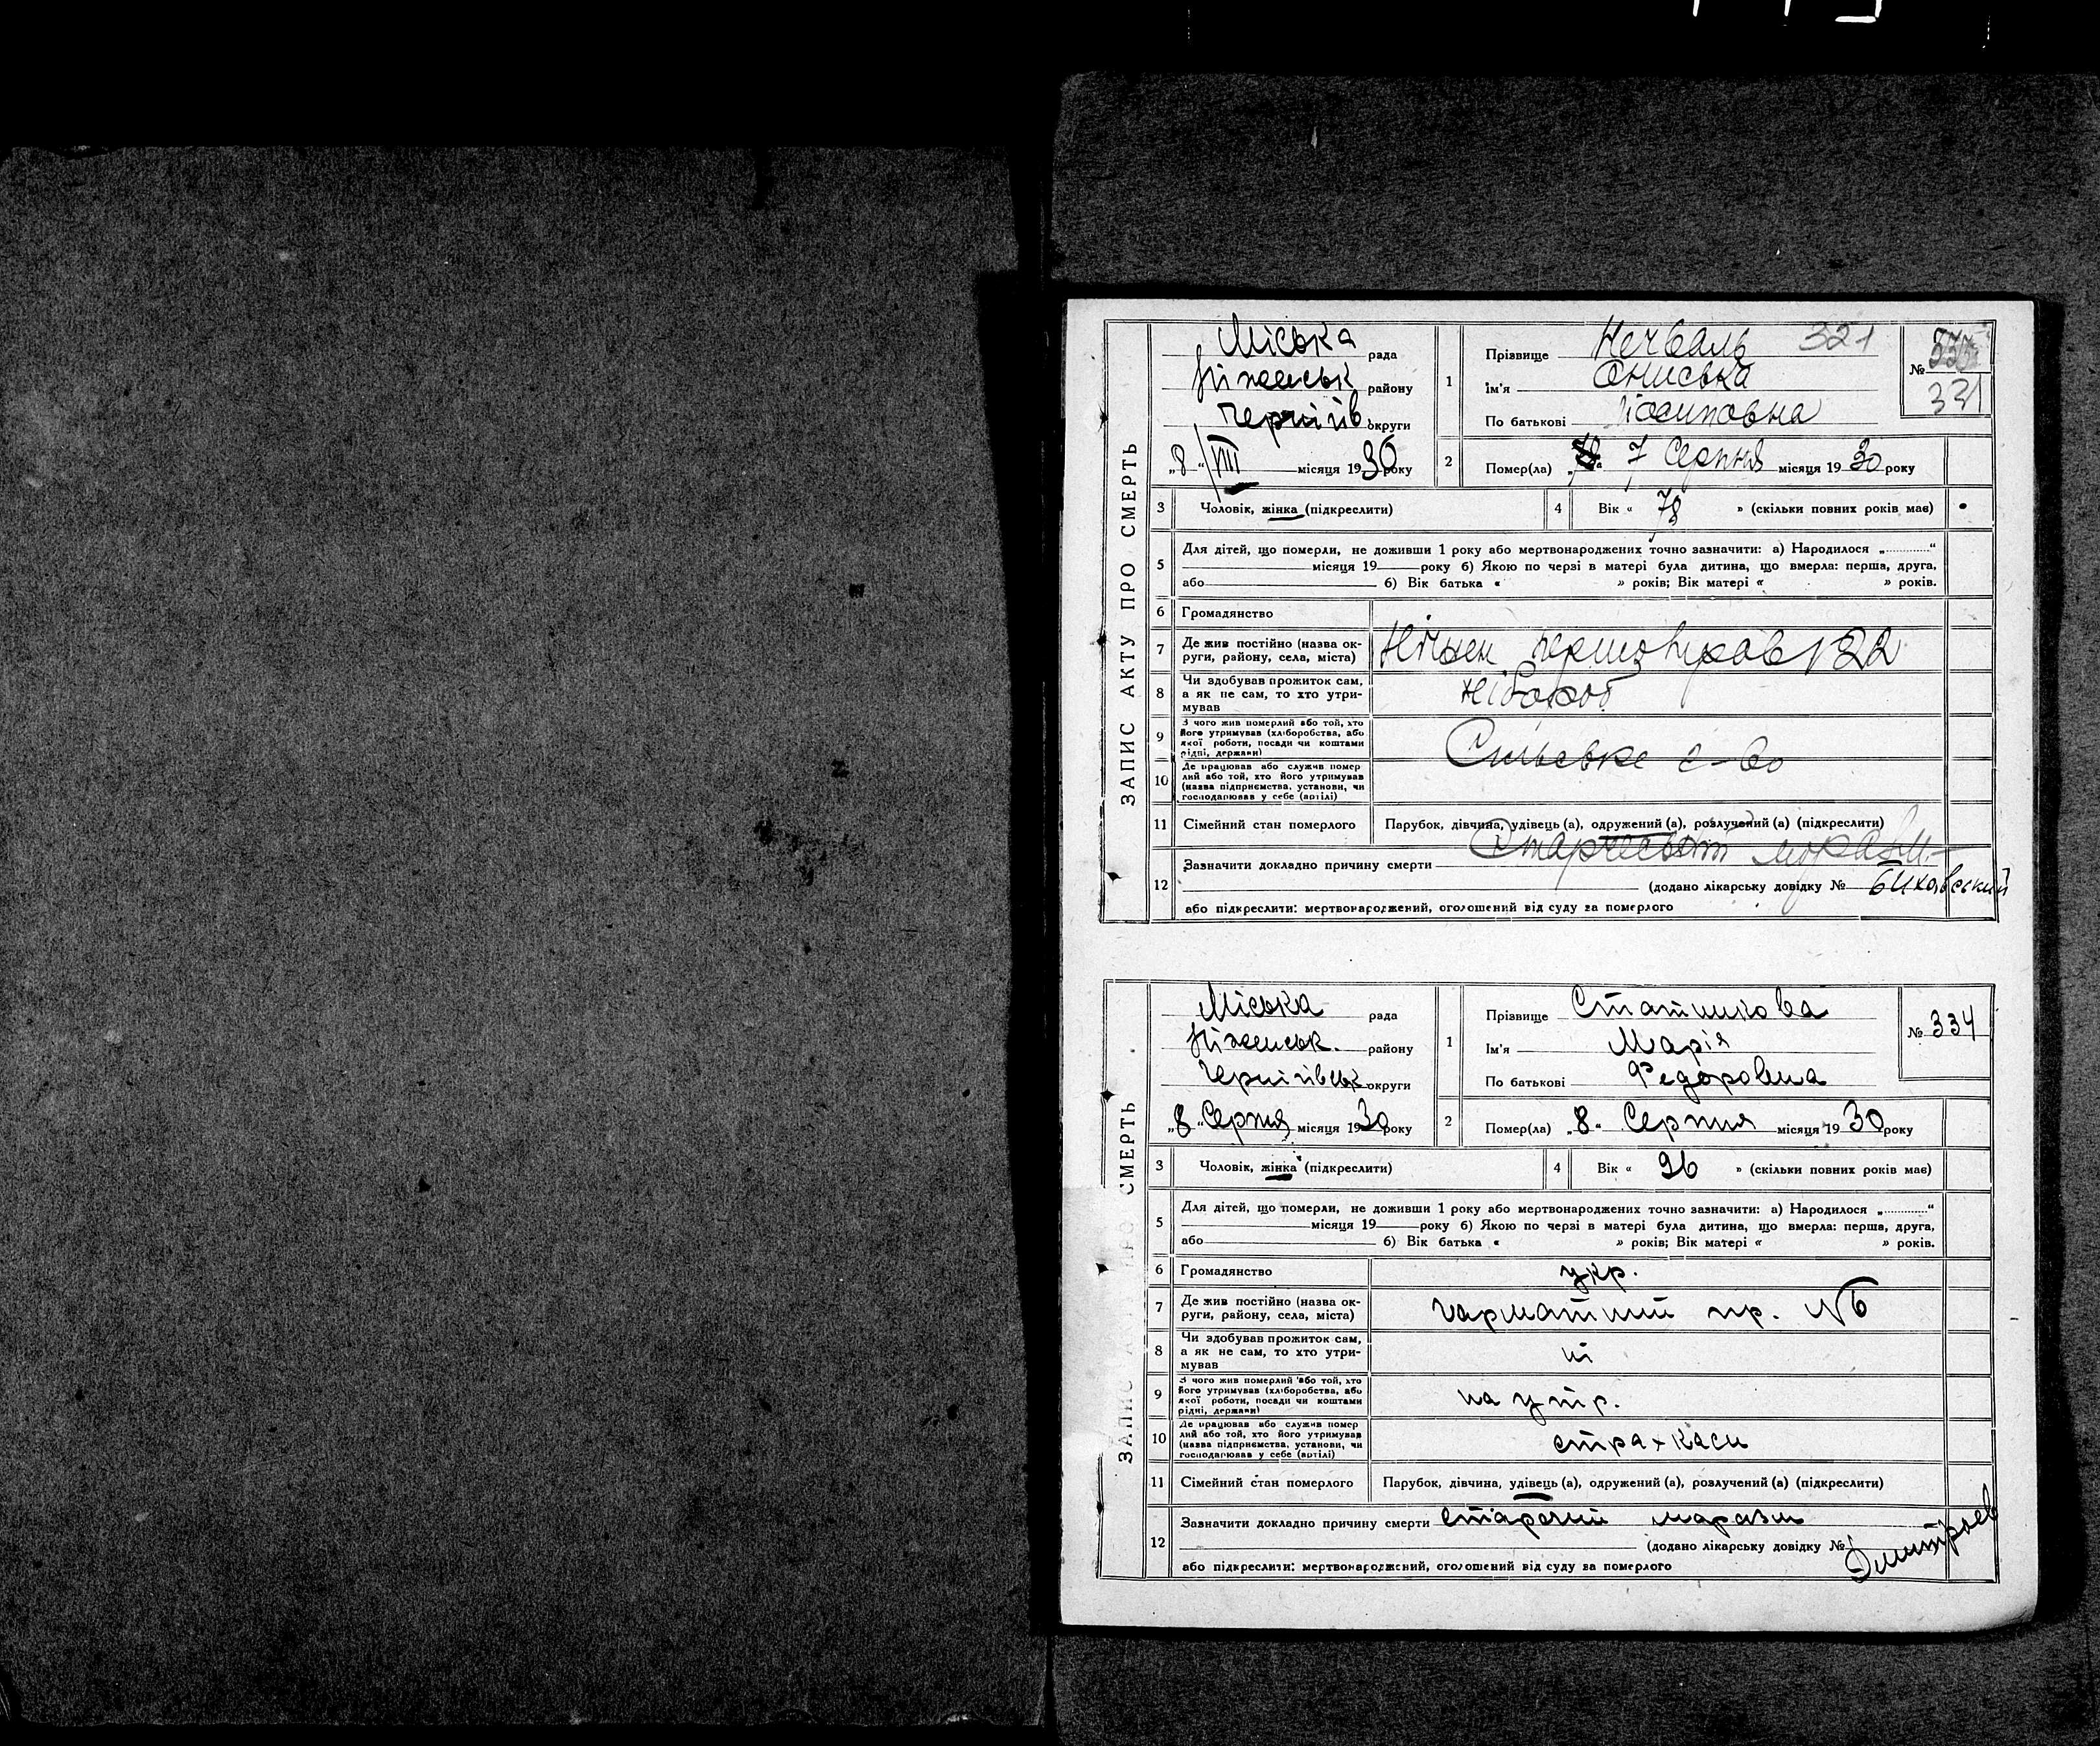 ЗАПИС АКТУ ПРО СМЕРТЬ
Міська рада
Ніженськ району
Чернігів округи
„8“ VIII місяця 1930 року
1
Прізвище Нечваль 321
Ім'я Ониська
По батькові Йосиповна
№
331
2 Помер(ла) 7 Серпня місяця 1930 року
3 Чоловік, жінка (підкреслити)
4 Вік « 78 » (скільки повних років має)
5 Для дітей, що померли, не доживши 1 року або мертвонароджених точно зазначити: а) Народилося „............“
місяця 19 року б) Якою по черзі в матері була дитина, що вмерла: перша, друга,
або б) Вік батька « » років; Вік матері « » років.
6 Громадянство
7 Де жив постійно (назва ок-
руги, району, села, міста)
22
8 Чи здобував прожиток сам,
а як не сам, то хто утри-
мував
9 З чого жив померлий або той, хто
його утримував (хліборобства, або
якої роботи, посади чи коштами
рідні, держави)
Сільське г-во
10 Де працював або служив помер
лий або той, хто його утримував
(назва підприємства, установи, чи
господарював у себе (артілі)
11 Сімейний стан померлого Парубок, дівчина, удівець (а), одружений (а), розлучений (а) (підкреслити)
12 Зазначити докладно причину смерти Старческий маразм
(додано лікарську довідку № Биховський
або підкреслити: мертвонароджений, оголошений від суду за померлого
ЗАПИС А ПРО СМЕРТЬ
Міська рада
Ніженськ. району
Чернігівськ округи
„8“ Серпня місяця 1930 року
1
Прізвище Статникова
Ім'я Марія
По батькові Федоровна
№ 334
2 Помер(ла) „8“ Серпня місяця 1930 року
3 Чоловік, жінка (підкреслити)
4 Вік « 96 » (скільки повних років має)
5 Для дітей, що померли, не доживши 1 року або мертвонароджених точно зазначити: а) Народилося „............“
місяця 19 року б) Якою по черзі в матері була дитина, що вмерла: перша, друга,
або б) Вік батька « » років; Вік матері « » років.
6 Громадянство укр.
7 Де жив постійно (назва ок-
руги, району, села, міста)
гарматний пр. №6
8 Чи здобував прожиток сам,
а як не сам, то хто утри-
мував
ні
9 З чого жив померлий або той, хто
його утримував (хліборобства, або
якої роботи, посади чи коштами
рідні, держави)
на утр.
10 Де працював або служив помер
лий або той, хто його утримував
(назва підприємства, установи, чи
господарював у себе (артілі)
страхкаси
11 Сімейний стан померлого Парубок, дівчина, удівець (а), одружений (а), розлучений (а) (підкреслити)
12 Зазначити докладно причину смерти старечий маразм
(додано лікарську довідку № Дмитрьев
або підкреслити: мертвонароджений, оголошений від суду за померлого